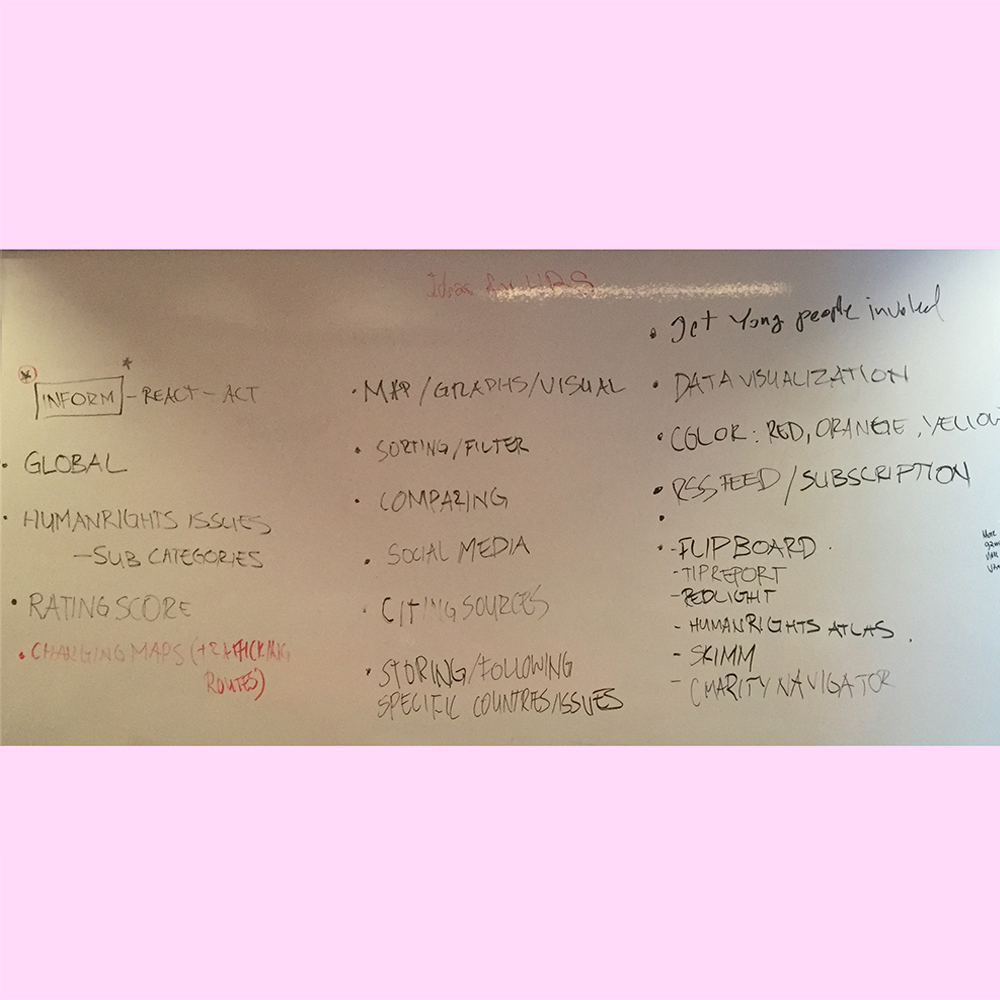 Ideas for HRS
* *
INFORM - REACT - ACT
• GLOBAL
• HUMANRIGHTS ISSUES
- SUB CATEGORIES
• RATING SCORE
• CHANGING MAPS (TRAFFICKING
ROUTES)
• MAP/GRAPHS/VISUAL
• SORTING/FILTER
• COMPARING
• SOCIAL MEDIA
• CITING SOURCES
• STORING/FOLLOWING
SPECIFIC COUNTRES/ISSUES
• Get Yong people involed
• DATA VISUALIZATION
• COLOR: RED, ORANGE, YELLOW
• RSS FEED/SUBSCRIPTION
•
• - FLIPBOARD
- TIPREPORT
- REDLIGHT
- HUMANRIGHTS ATLAS
- SKIMM
- CHARITY NAVIGATOR